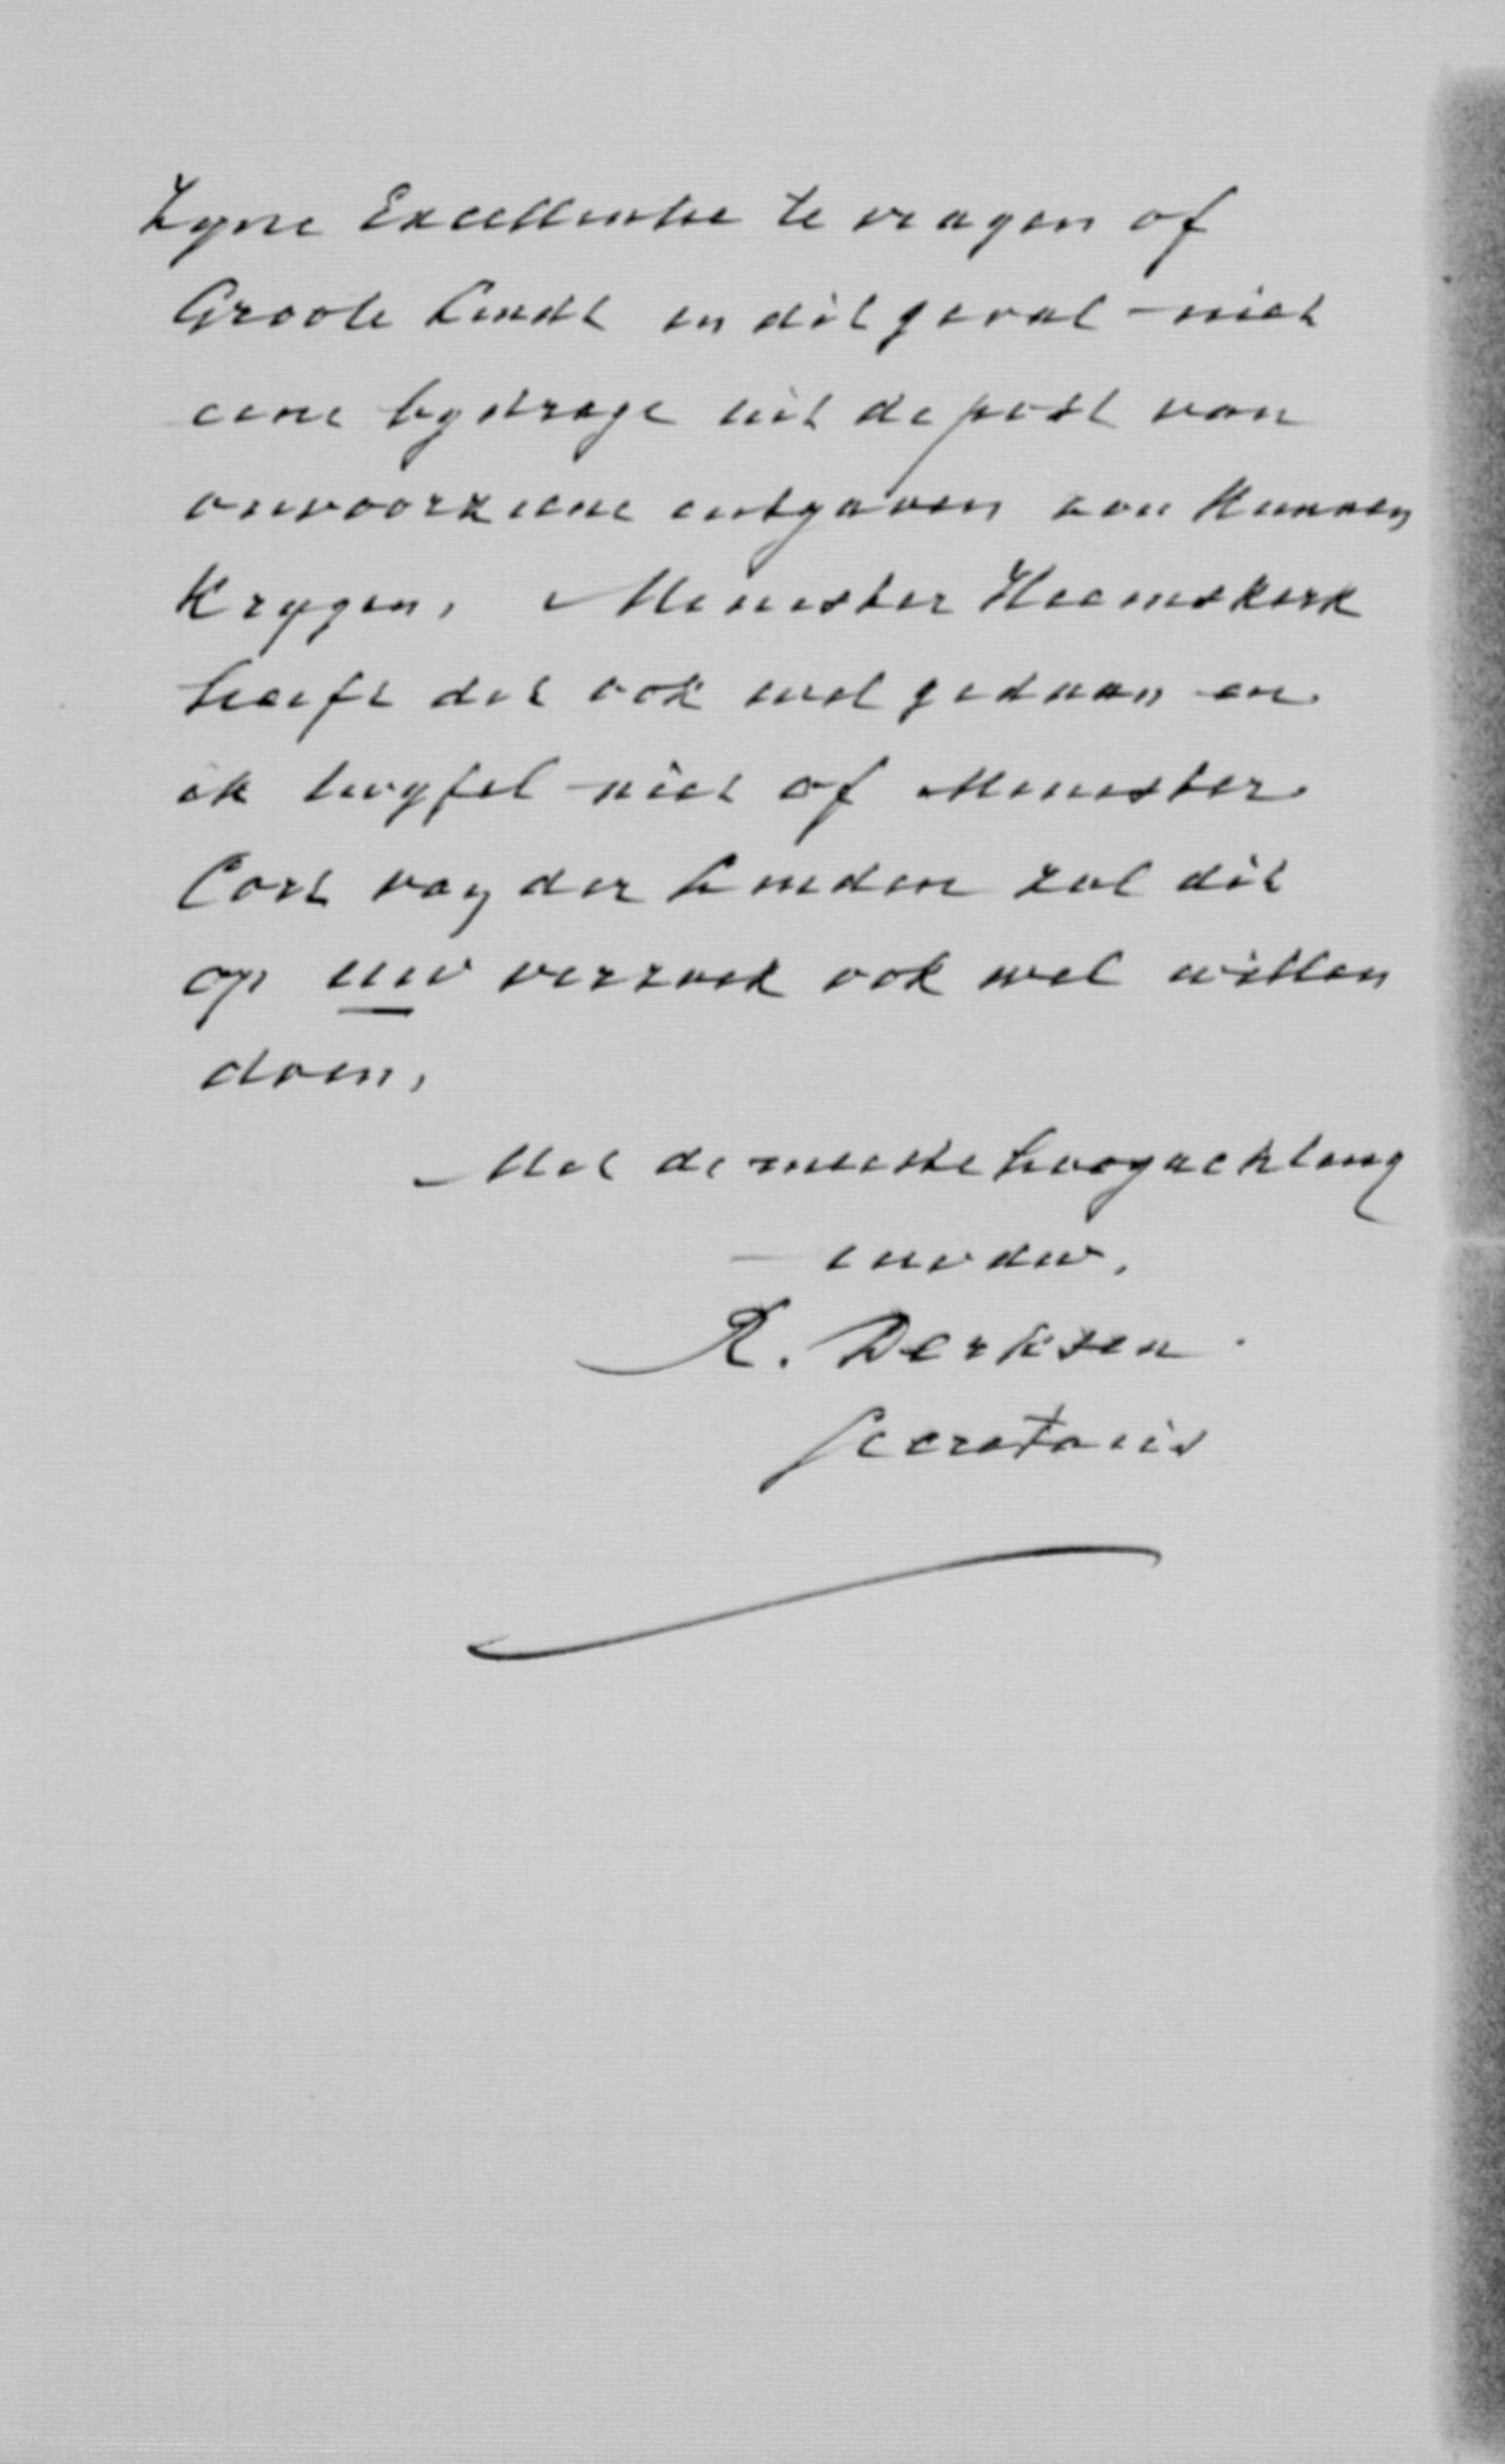 Zyne Excellentie te vragen of
Groote Lindt in dit geval niet
eene bydrage uit de post van
onvoorziene uitgaven zou kunnen
krygen. Minister Heemskerk
heeft dit ook wel gedaan en
ik twyfel niet of Minister
Cort van der Linden zal dit
op uw verzoek ook wel willen
doen.
Met de meeste hoogachting
uw dw.
R. Derksen
Secretaris